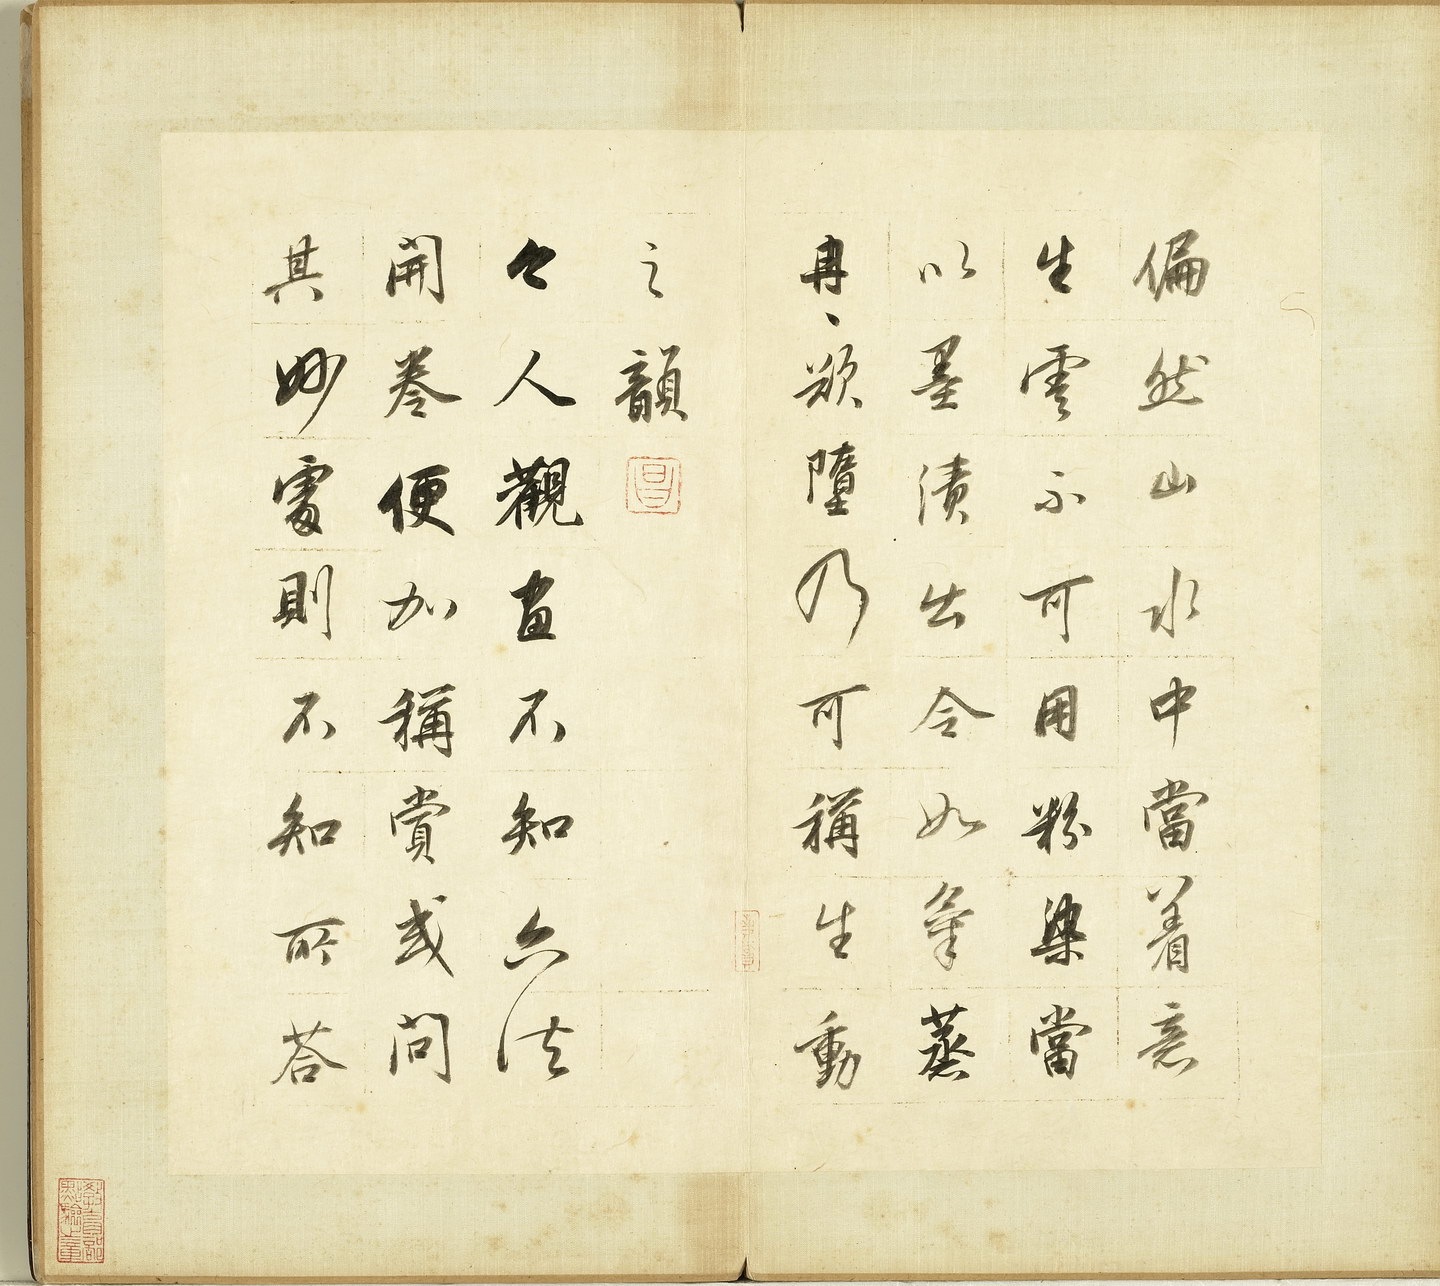 偏然山水中當着意
生雲不可用粉染當
以墨漬出令如氣蒸
冉、欲墮乃可稱生動
之韻
昌
今人觀畫不知六法
開卷便加稱賞或問
其妙處則不知所答